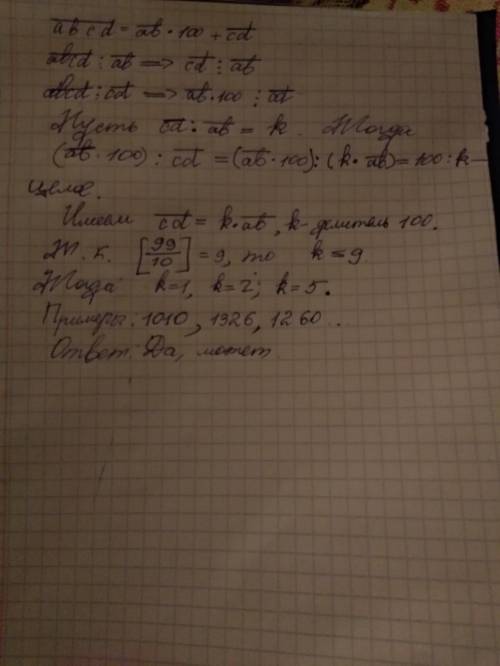 a̅b̅c̅d̅ = a̅b̅ · 100 + c̅d̅
a̅b̅c̅d̅ ⋮ a̅b̅ ⟹ c̅d̅ ⋮ a̅b̅
a̅b̅c̅d̅ ⋮ c̅d̅ ⟹ a̅b̅ · 100 ⋮ a̅b̅
Пусть c̅d̅ : a̅b̅ = k. Тогда
(a̅b̅ · 100) : c̅d̅ = (a̅b̅ · 100) : (k · a̅b̅) = 100 : k —
целое.
Имеем c̅d̅ = k · a̅b̅, k - делитель 100.
Т. к. [99/10] = 9, то k ≤ 9
Тогда k=1, k=2; k=5.
Примеры: 1010, 1326, 1260.
Ответ: Да, может